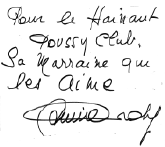 Pour le Hainaut
Poussy Club,
Sa Marraine qui
les aime